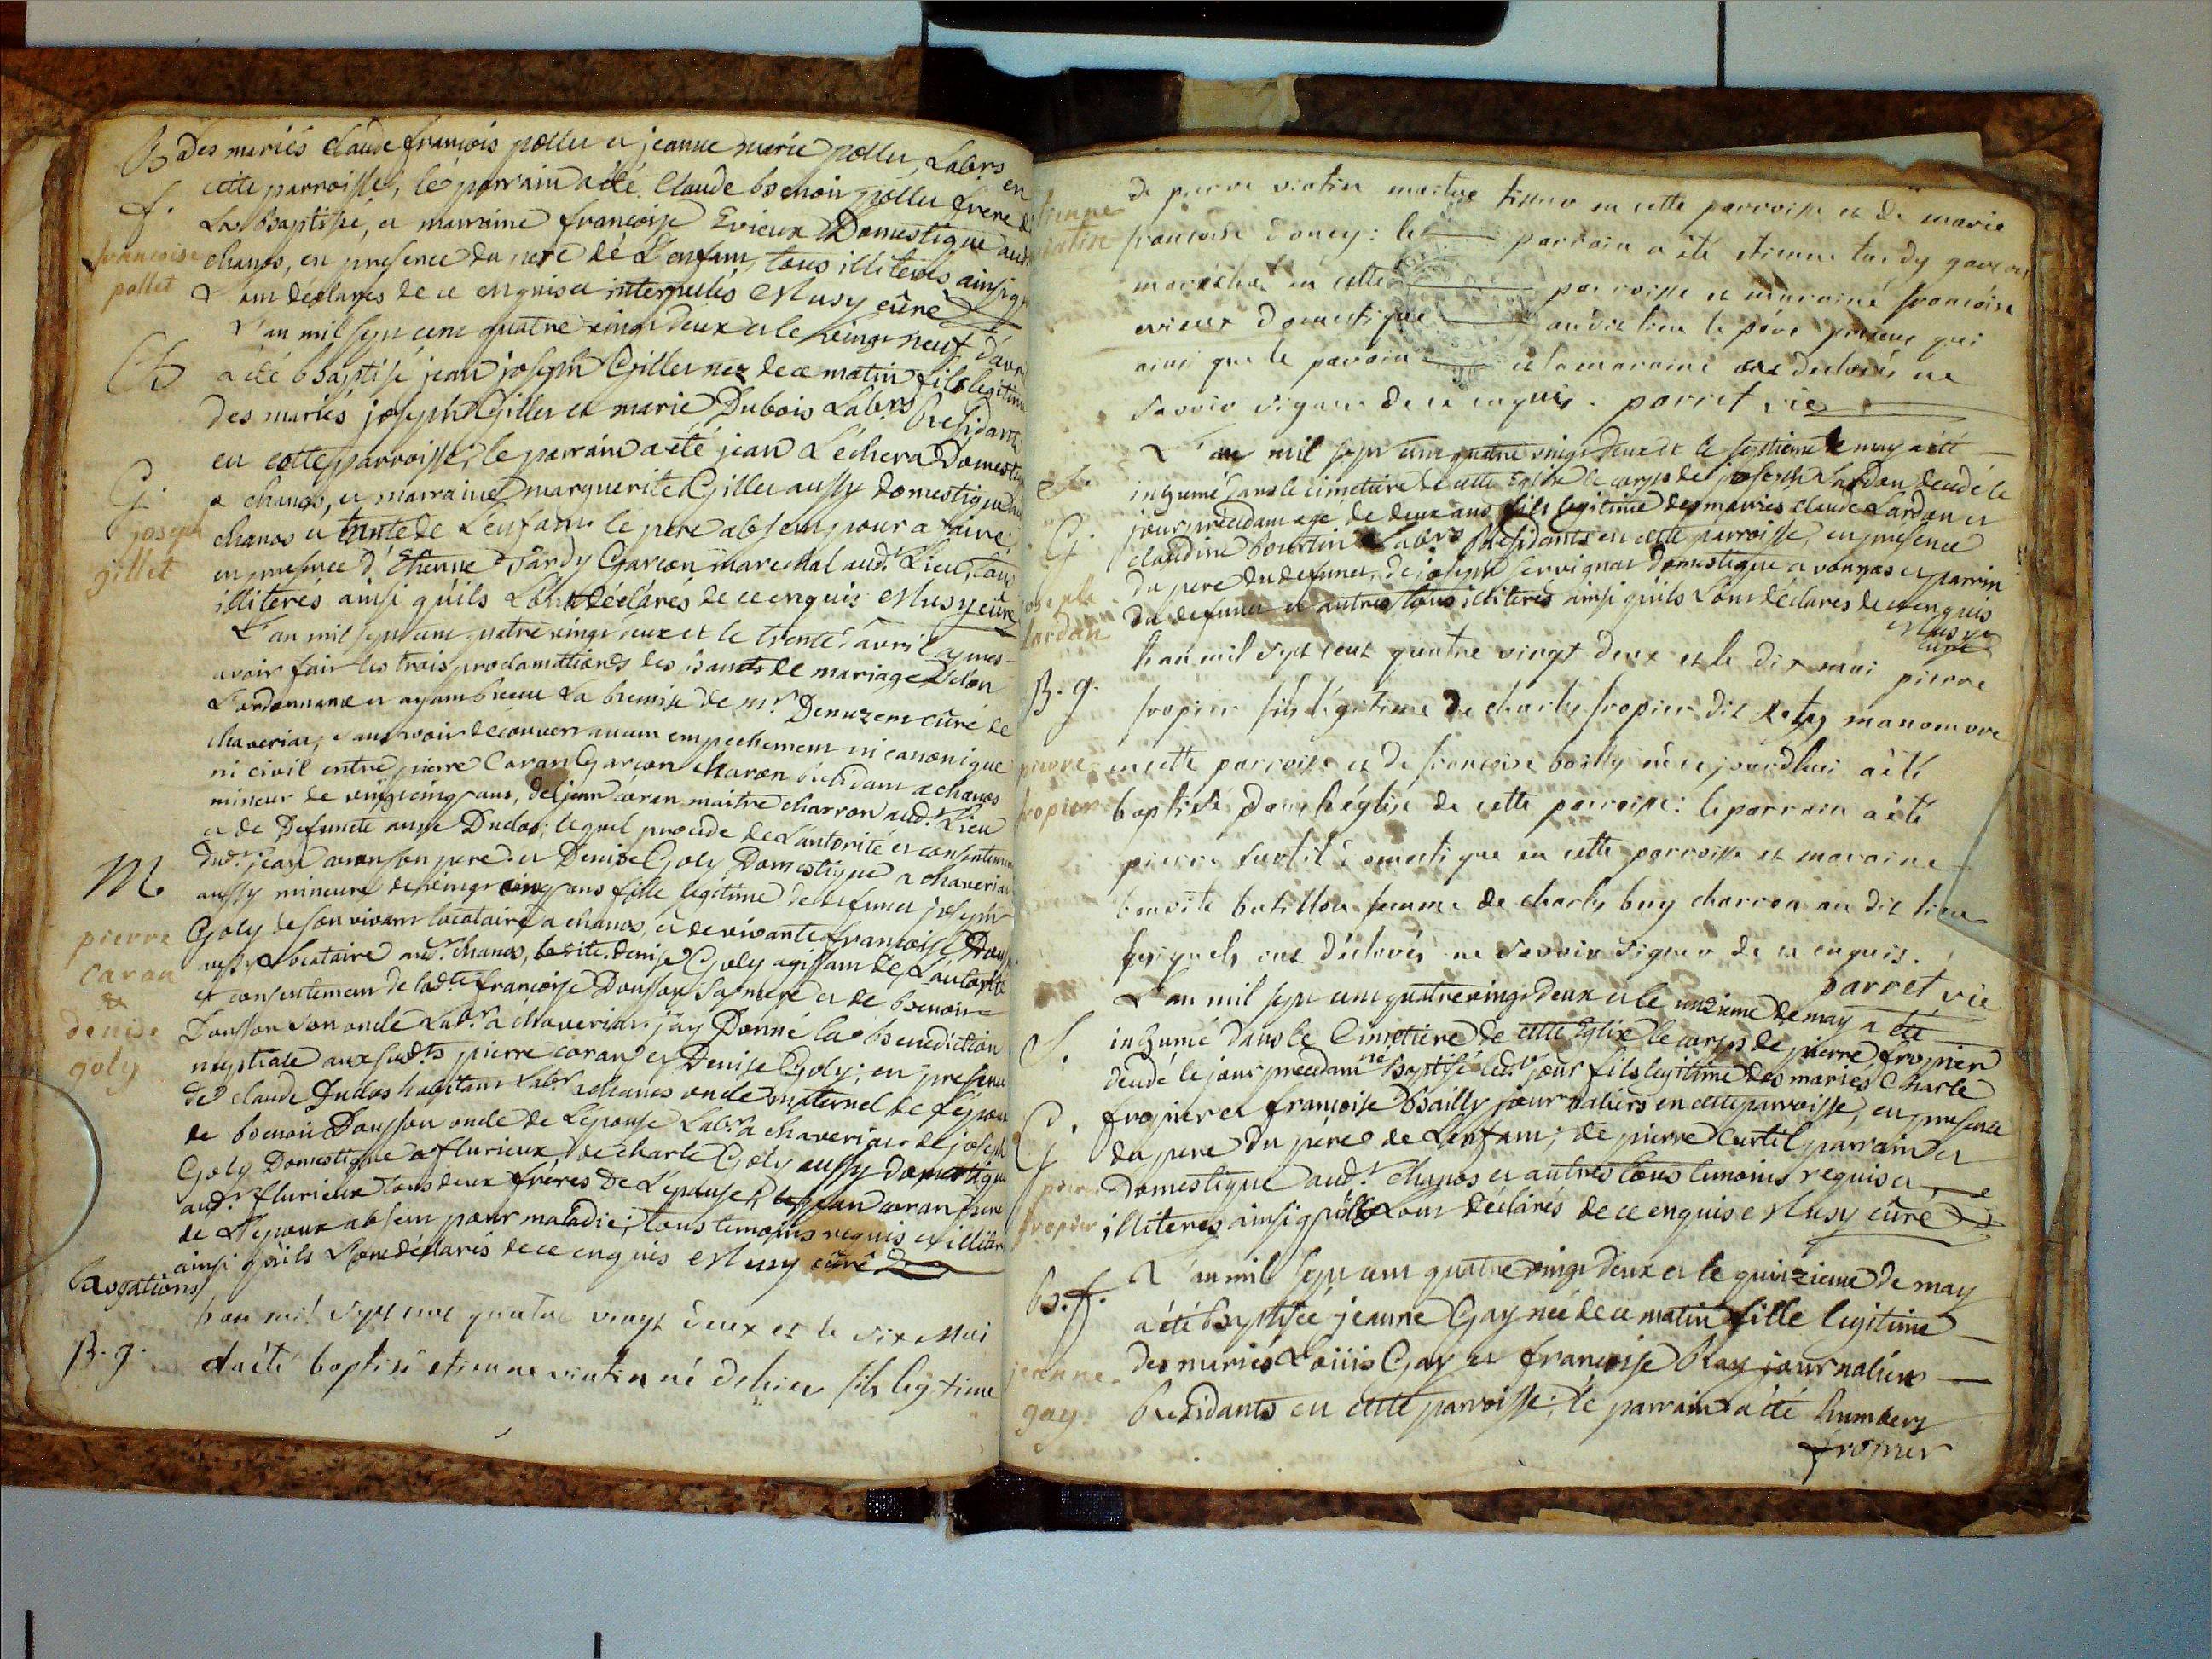 B des mariés claude francois pollet et jeanne marie pollet Labrs en
cette parroisse, le parrain a été Claude benoit pollet frere de
f.
La Baptisée, et marraine francoise Evieux Domestique aud.
francoise
pollet
chanos, en presence du pere de L'enfant, tous illiterés ainsi qu'
ont declarés de ce enquis et interpellés Musy curé
L'an mil sept cent quatre vingt deux et le vingt neuf d'avril
B
a été baptisé jean joseph Gillet nez de ce matin fils legitime
des mariés joseph Gillet et marie Dubois Labrs Residants
en cette parroisse, le parrain a été jean Léchera Domestique
G.
joseph
gillet
a chanos, et marraine marguerite Gillet aussy domestique
chanos et tante de L'enfant le pere absent pour a faire,
en presence d'Etienne Tardy Garçon marechal aud. Lieu, tous
illiterés ainsi qu'ils L'ont déclarés de ce enquis Musy curé
L'an mil sept cent quatre vingt deux et le trente avril apres
avoir fait les trois proclamations des bancts de mariage Selon
L'ordonnance et ayant receu La Remise de mr. Denuzem curé de
chaveriat, sans avoir découvert aucun empechement ni canonique
ni civil entre pierre Caran Garçon charon Residant a chanos
mineur de vingt cinq ans, de jean caran maitre charron aud. Lieu
et de Defuncte anne Duclos; lequel procede de L'autorité et consentement
dud. jean caran son pere et Denise Goly Domestique a chaveriat
M
aussy mineure de vingt cinq ans fille legitime de defunct joseph
pierre
caran
&
denise
goly
Goly de son vivant locataire a chanos, et de vivante francoise Dousson
aussy locataire aud. chanos, la dite denise Goly agissant de L'autorité
et consentement de lad.te francoise Dousson sa mere et de benoit
Dousson son oncle Labr. a chaveriat. j'ay Donné la benediction
nuptiale aux sud.ts pierre caran et Denise Goly; en presence
de claude Duclos habitant Labr. a chanos oncle maternel de l'epoux
de benoit Dousson oncle de L'epouse Labr. a chaveriat de joseph
Goly Domestique a flurieux, de charle Goly aussy domestique
aud. flurieux tous deux freres de L'epouse, jean caran pere
de L'epoux absent pour maladie; tous temoins requis et illiterés
ainsi qu'ils L'ont déclarés de ce enquis Musy curé
Rogations
L'an mil sept cent quatre vingt deux et le six Mai
B. g.
a été baptisé etienne viatin né d'hier fils legitime
de pierre viatin maitre tisseur en cette parroisse et de marie
etienne
viatin
francoise Doncy: le parrain a été etienne tardy garçon
marechal en cette parroisse et marraine francoise
evieux domestique audit lieu le pére present qui
ainsi que le parain et la maraine ont declarés ne
savoir signer de ce enquis. parret vic
L'an mil sept cent quatre vingt deux et le septieme de may a été
inhumé dans le cimetiere de cette Eglise le corps de joseph Lardan decedé le
jour précedant agé de deux ans fils legitime des mariés claude Lardan et
G.
claudine bourtin Labrs Residants en cette parroisse, en presence
du pere du defunct, de joseph servignat domestique a vonnas et parrin
joseph
lardan
du defunct et autres tous illiterés ainsi qu'ils L'ont déclarés de ce enquis
Musy
curé
L'an mil sept cent quatre vingt deux et le dix mai pierre
B. g.
fropier fils légitime de charles fropier dit manoeuvre
pierre
fropier
en cette parroisse et de francoise bailly né ce jourd'hui a été
baptisé dans l'église de cette paroisse: le parrain a été
pierre curtil domestique en cette parroisse et maraine
benoite batillon femme de charles buy charron au dit lieu
lesquels ont déclarés ne savoir signer de ce enquis.
parret vic
L'an mil sept cent quatre vingt deux et le onzieme de may a été
S.
inhumé dans le Cimetiere de cette Eglise le corps de pierre fropier
decedé le jour precedant ne baptisé led. jour fils legitime des mariés Charle
fropier et francoise Bailly journaliers en cette parroisse, en presence
G.
du pere du pére de L'enfant; de pierre Curtil parrain et
pierre
fropier
Domestique aud. chanos et autres tous temoins requis et
illiteres ainsi qu'ils L'ont déclarés de ce enquis Musy curé
L'an mil sept cent quatre vingt deux et le quinzieme de may
B. f.
a été Baptisée jeanne Gay née de ce matin fille legitime
jeanne
gay.
des mariés Loüis Gay et francoise Ray journaliers
Residants en cette parroisse; le parrain a été humbert
fropier